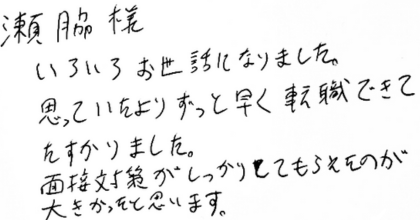 瀬脇様
いろいろお世話になりました。
思っていたよりずっと早く転職できて
たすかりました。
面接対策がしっかりしてもらえたのが
大きかったと思います。